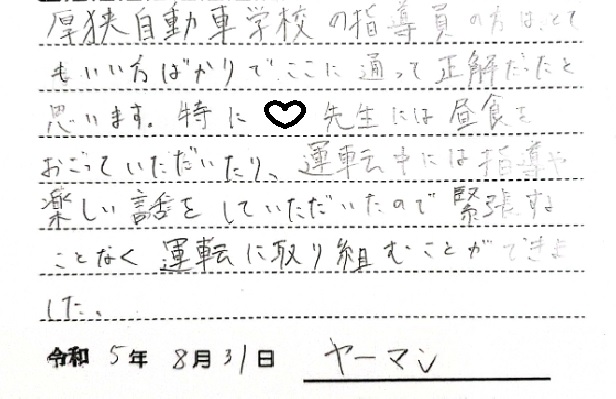 厚狭自動車学校の指導員の方は、とて
もいい方ばかりで、ここに通って正解だったと
思います。特に♡先生には昼食を
おごっていただいたり、運転中には指導や
楽しい話をしていただいたので緊張する
ことなく運転に取り組むことができま
した。
令和5年8月31日 ヤーマン